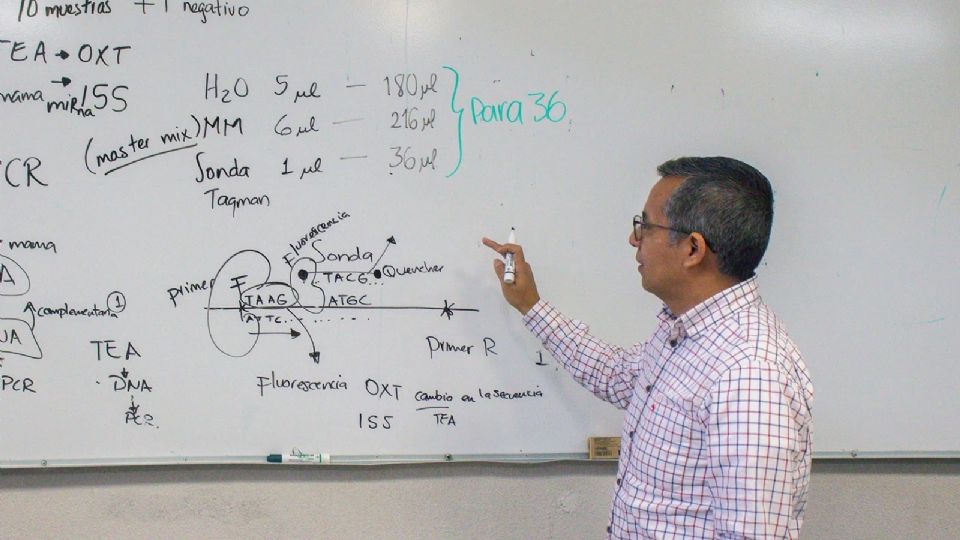 10 muestras + 1 negativo
TEA → OXT
mama → miRna /ISS
H2O 5 µl — 180 µl
(master mix) MM 6 µl — 216 µl
Sonda 1 µl — 36 µl
Taqman
} Para 36
CR
mama
A
complementaria 1
UA
PCR
TEA
↓
DNA
↓
PCR
primer F
Fluorescencia
Sonda
Quencher
TACG...
TAAG ATGC
ATTC.......
Primer R
1
Fluorescencia OXT cambio en la secuencia
ISS TEA